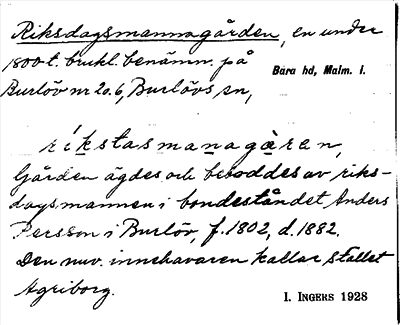 Riksdagsmannagården, en under
1800t. brukl. benämn. på
Bara hd, Malm. l.
Burlöv nr 20.6, Burlövs sn,
ríkstasmanagàren,
Gården ägdes och beboddes av riks-
dagsmannen i bondeståndet Anders
Persson i Burlöv, f. 1802, d. 1882.
Den nuv. innehavaren kallar stället
Agriborg.
I. INGERS 1928